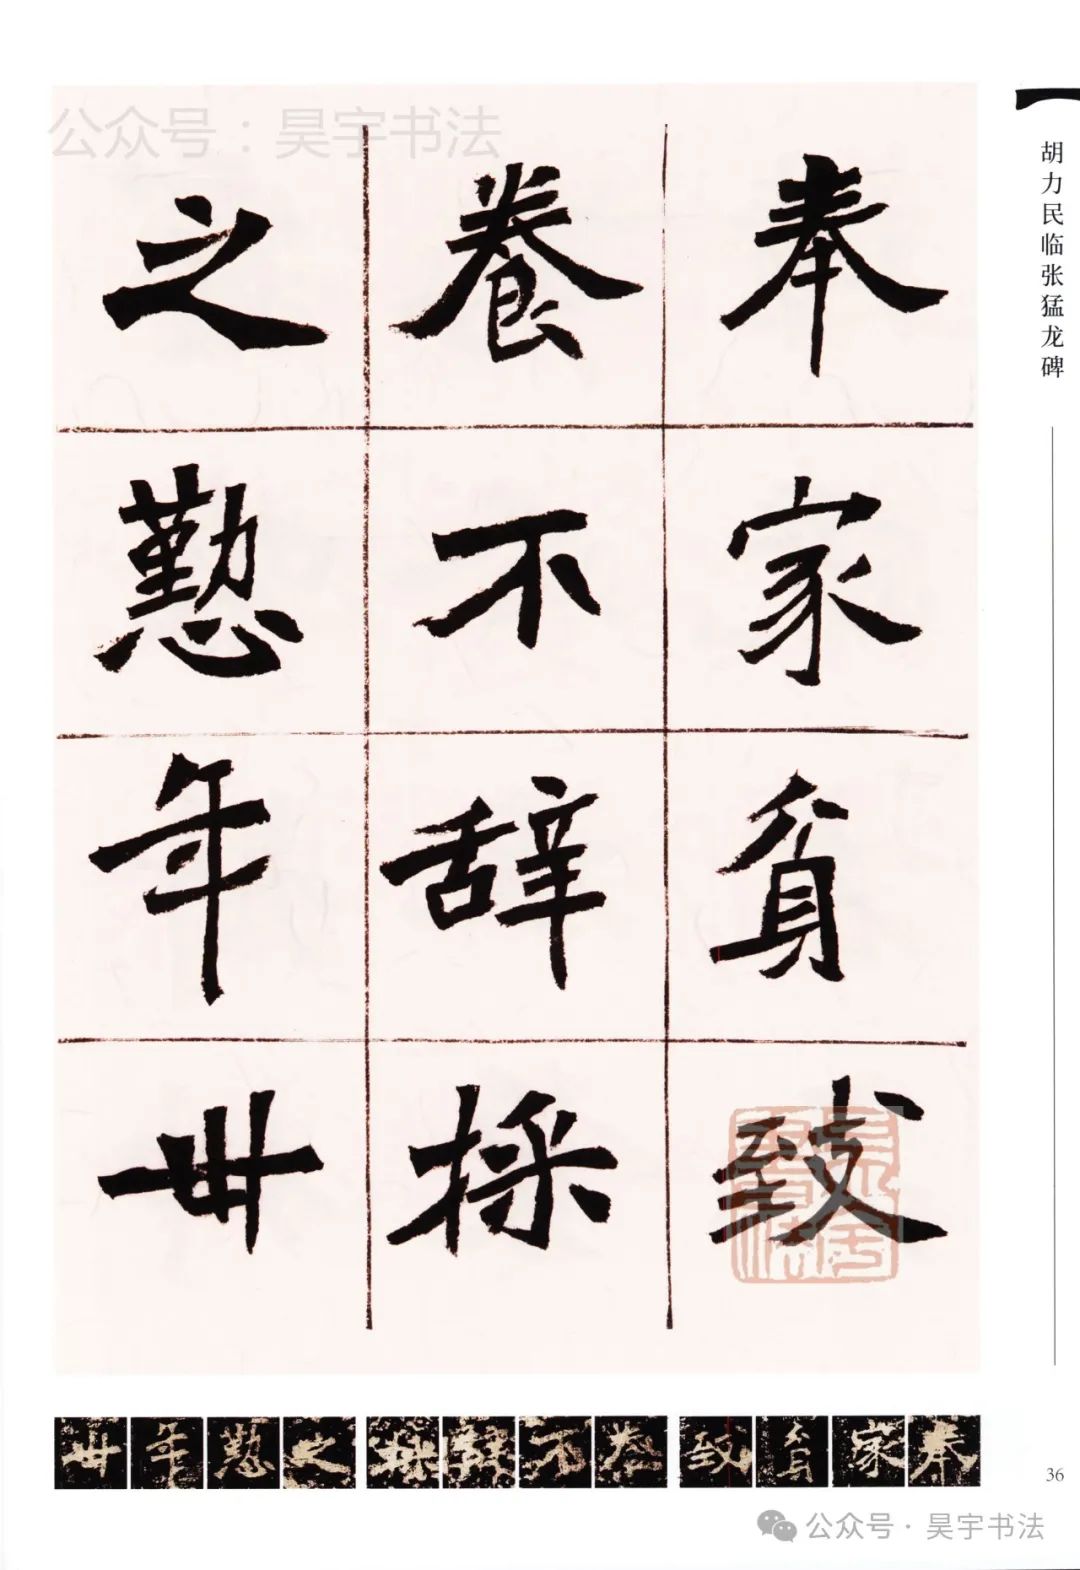 公众号:昊宇书法
胡力民临张猛龙碑
奉家貧致
養不辭採
之懃年卅
奉家貧致養不辭採之懃年卅
36
公众号·昊宇书法